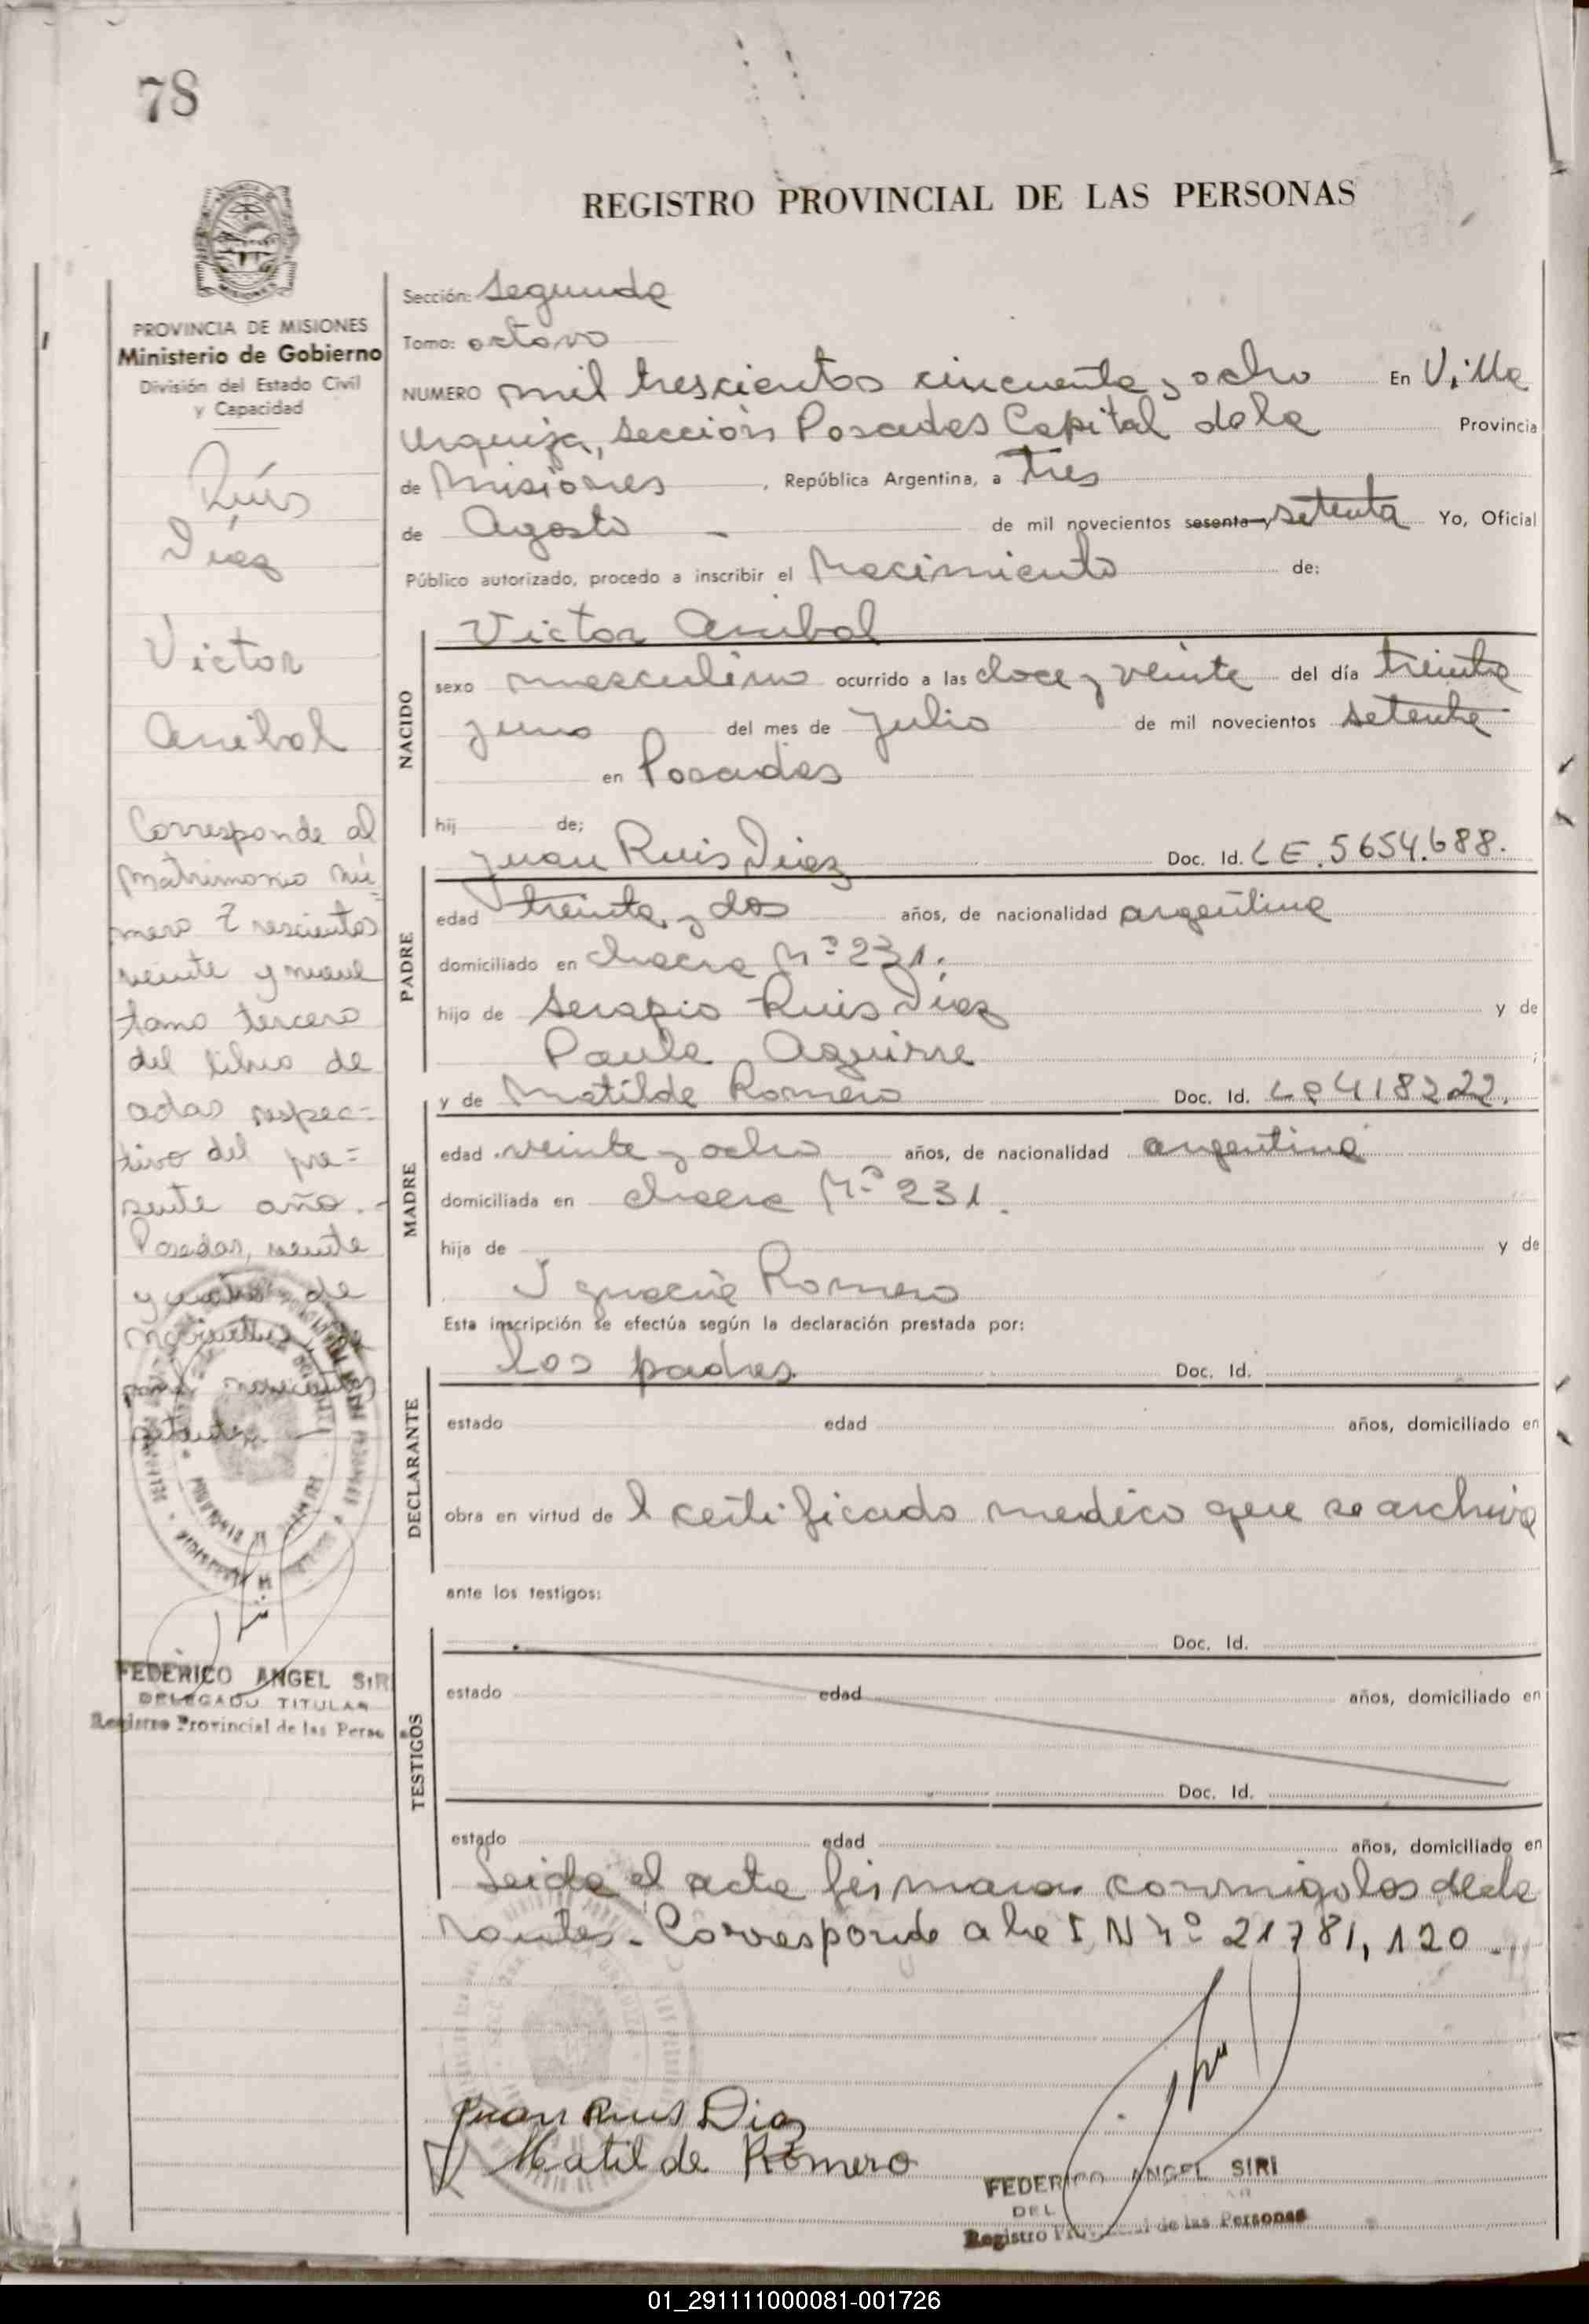 78
REGISTRO PROVINCIAL DE LAS PERSONAS
PROVINCIA DE MISIONES
Ministerio de Gobierno
División del Estado Civil
y Capacidad
Ruis
Diaz
Victor
Anibal
Corresponde al
matrimonio nú=
mero Trescientos
veinte y nueve
tomo tercero
del libro de
actas respec=
tivo del pre=
sente año.-
Posadas, veinte
y de
novecientos
setenta
FEDERICO ANGEL SIRI
DELEGADO TITULAR
Registro Provincial de las Perso
Sección: Segunda
Tomo: octavo
NUMERO mil trescientos cincuenta y ocho En Villa
Urquiza, sección Posadas Capital de la Provincia
de Misiones, República Argentina, a Tres
de Agosto - de mil novecientos sesenta y setenta Yo, Oficial
Público autorizado, procedo a inscribir el Nacimiento de:
Victor Anibal
NACIDO
sexo masculino ocurrido a las doce y veinte del día treinta
y uno del mes de Julio de mil novecientos setenta
en Posadas
hij de;
Juan Ruis Diaz Doc. Id. LE. 5654.688.
PADRE
edad treinta y dos años, de nacionalidad argentina
domiciliado en chacra Nº 231.
hijo de Serapio Ruis Diaz y de
Paula Aguirre ;
y de Matilde Romero Doc. Id. 418222.
MADRE
edad veinte y ocho años, de nacionalidad argentina
domiciliada en chacra Nº 231.
hija de y de
Ignacia Romero
Esta inscripción se efectúa según la declaración prestada por:
los padres Doc. Id.
DECLARANTE
estado edad años, domiciliado en
obra en virtud de l certificado medico que se archiva
ante los testigos:
TESTIGOS
Doc. Id.
estado edad años, domiciliado en
Doc. Id.
estado edad años, domiciliado en
Leida el acta firmaron conmigo los decla
rantes.- Corresponde a la I N Nº 21781,120.
Juan Ruis Diaz
Matilde Romero
FEDERICO ANGEL SIRI
DEL
Registro de las Personas
01_291111000081-001726